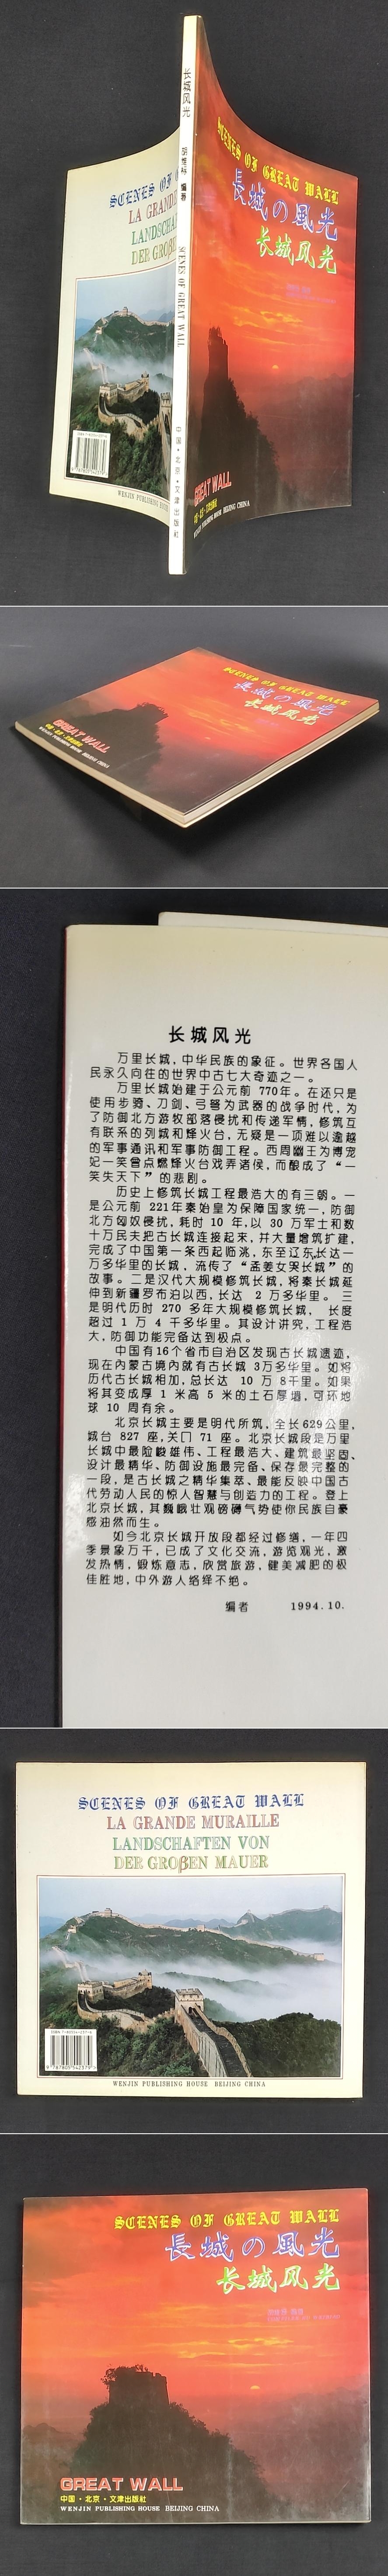 长城风光
编著
SCENES OF GREAT WALL
中国·北京·文津出版社
SCENES OF G
LA GRANDE
LANDSCHAF
DER GROß
WENJIN PUBLISHING HOUSE
SCENES OF GREAT WALL
長城の風光
长城风光
GREAT WALL
中国·北京·文津出版社
WENJIN PUBLISHING HOUSE BEIJING CHINA
SCENES OF GREAT WALL
長城の風光
长城风光
GREAT WALL
中国·北京·文津出版社
WENJIN PUBLISHING HOUSE BEIJING CHINA
长城风光
万里长城,中华民族的象征。世界各国人
民永久向往的世界中古七大奇迹之一。
万里长城始建于公元前 770年。在还只是
使用步骑、刀剑、弓弩为武器的战争时代,为
了防御北方游牧部落侵扰和传递军情,修筑互
有联系的列城和烽火台,无疑是一项难以逾越
的军事通讯和军事防御工程。西周幽王为博宠
妃一笑曾点燃烽火台戏弄诸侯,而酿成了“一
笑失天下”的悲剧。
历史上修筑长城工程最浩大的有三朝。一
是公元前 221年秦始皇为保障国家统一,防御
北方匈奴侵扰,耗时 10 年,以 30 万军士和数
十万民夫把古长城连接起来,并大量增筑扩建,
完成了中国第一条西起临洮,东至辽东,长达一
万多华里的长城,流传了“孟姜女哭长城”的
故事。二是汉代大规模修筑长城,将秦长城延
伸到新疆罗布泊以西,长达 2 万多华里。三
是明代历时 270 多年大规模修筑长城,长度
超过 1 万 4 千多华里。其设计讲究,工程浩
大,防御功能完备达到极点。
中国有16个省市自治区发现古长城遗迹,
现在内蒙古境内就有古长城 3万多华里。如将
历代古长城相加,总长达 10 万 8千里。如果
将其变成厚 1 米高 5 米的土石厚墙,可环地
球 10 周有余。
北京长城主要是明代所筑,全长629公里,
城台 827 座,关门 71 座。北京长城段是万里
长城中最险峻雄伟、工程最浩大、建筑最坚固、
设计最精华、防御设施最完备、保存最完整的
一段,是古长城之精华集萃、最能反映中国古
代劳动人民的惊人智慧与创造力的工程。登上
北京长城,其巍峨壮观磅礴气势使你民族自豪
感油然而生。
如今北京长城开放段都经过修缮,一年四
季景象万千,已成了文化交流,游览观光,激
发热情,锻炼意志,欣赏旅游,健美减肥的极
佳胜地,中外游人络绎不绝。
编者 1994.10.
SCENES OF GREAT WALL
LA GRANDE MURAILLE
LANDSCHAFTEN VON
DER GROßEN MAUER
ISBN 7-80554-237-9
9787805542379
WENJIN PUBLISHING HOUSE BEIJING CHINA
SCENES OF GREAT WALL
長城の風光
长城风光
GREAT WALL
中国·北京·文津出版社
WENJIN PUBLISHING HOUSE BEIJING CHINA